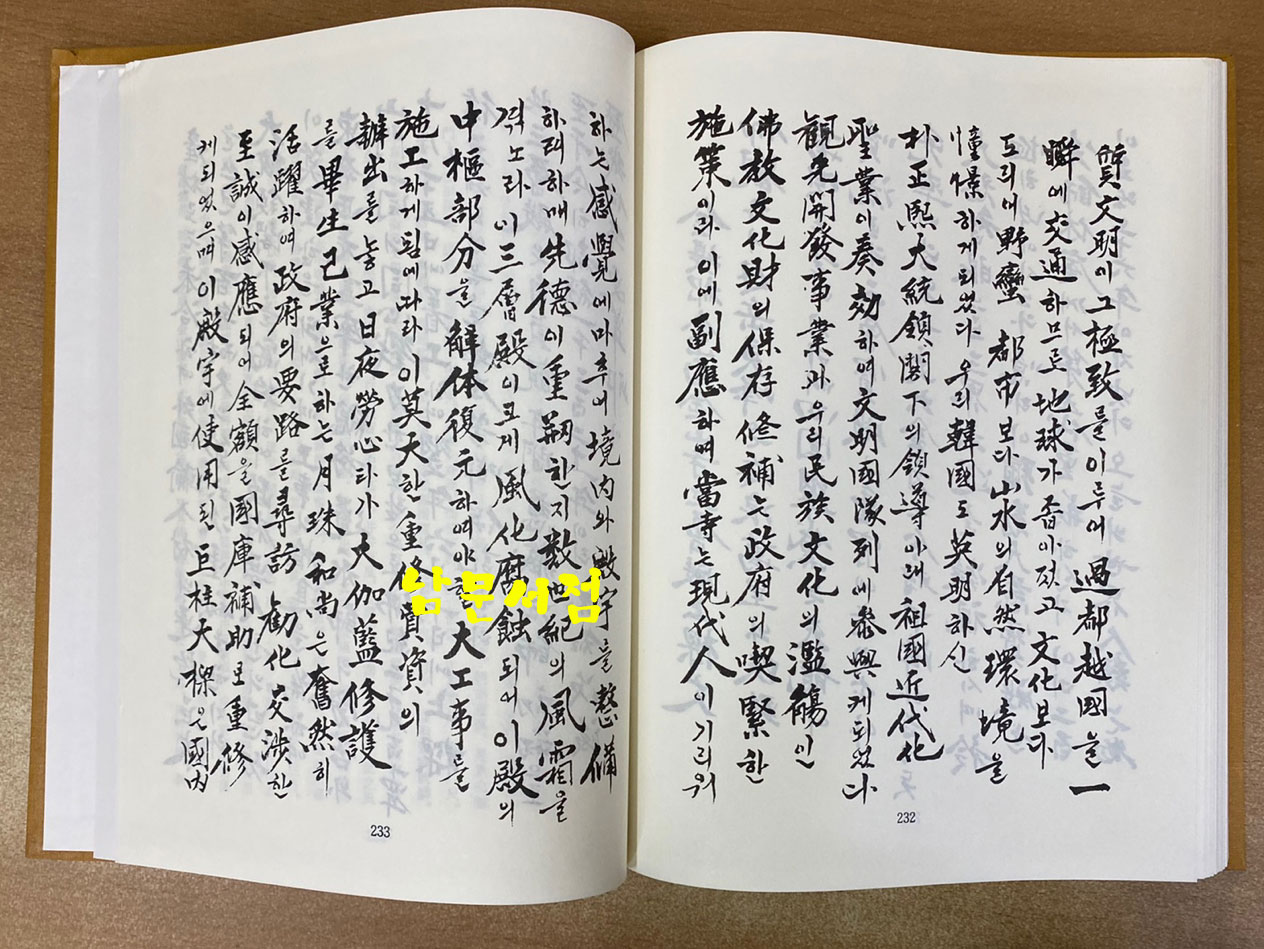 質文明이 그 極致를 이루어 過都越國을 一
瞬에 交通하므로 地球가 좁아졌고 文化보다
도리어 野蠻 都市보다 山水의 自然環境을
憧憬하게 되었다 우리 韓國도 英明하신
朴正熙大統領閣下의 領導아래 祖國近代化
聖業이 奏効하여 文明國隊列에 參與케 되었다
觀光開發事業과 우리 民族文化의 濫觴인
佛敎文化財의 保存修補는 政府의 喫緊한
施策이라 이에 副應하여 當寺는 現代人이 기리워
232
하는 感覺에 마추어 境內와 殿宇를 整備
하려하매 先德이 重剏한지 數世紀의 風霜을
겪노라 이 三層殿이 크게 風化腐蝕되어 이 殿의
中樞部分을 解体復元하여야 할 大工事를
施工하게 됨에 따라 이 莫大한 重修資의
辦出를 놓고 日夜勞心타가 大伽藍修護
를 畢生己業으로 하는 月珠和尙은 奮然히
活躍하여 政府의 要路를 尋訪 勸化交涉한
至誠이 感應되어 全額을 國庫補助로 重修
케 되었으며 이 殿宇에 使用된 巨柱大樑은 國內
233
남문서점